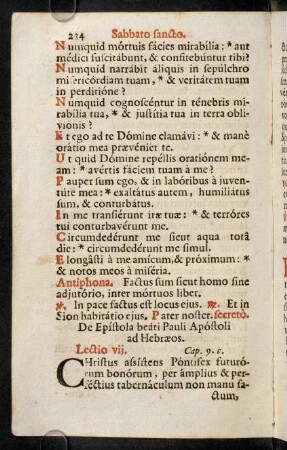 234 Sabbato sancto.
Numquid mórtuis fácies mirabília: * aut
médici suscitábunt, & confitebúntur tibi?
Numquid narrábit áliquis in sepúlchro
misericórdiam tuam, * & veritátem tuam
in perditióne?
Numquid cognoscéntur in ténebris mi-
rabília tua, * & justítia tua in terra obli-
viónis?
Et ego ad te Dómine clamávi: * & manè
orátio mea prævéniet te.
Ut quid Dómine repéllis oratiónem me-
am: * avértis fáciem tuam à me?
Pauper sum ego, & in labóribus à juven-
túte mea: * exaltátus autem, humiliátus
sum, & conturbátus.
In me transiérunt iræ tuæ: * & terróres
tui conturbavérunt me.
Circumdedérunt me sicut aqua totâ
die: * circumdedérunt me simul.
Elongâsti à me amícum, & próximum: *
& notos meos à miséria.
Antiphona. Factus sum sicut homo sine
adjutório, inter mórtuos liber.
℣. In pace factus est locus ejus. ℟. Et in
Sion habitátio ejus. Pater noster. secretò.
De Epístola beáti Pauli Apóstoli
ad Hebræos.
Lectio vij. Cap. 9. c.
CHristus assístens Póntifex futuró-
rum bonórum, per ámplius & per-
féctius tabernáculum non manu fa-
ctum,